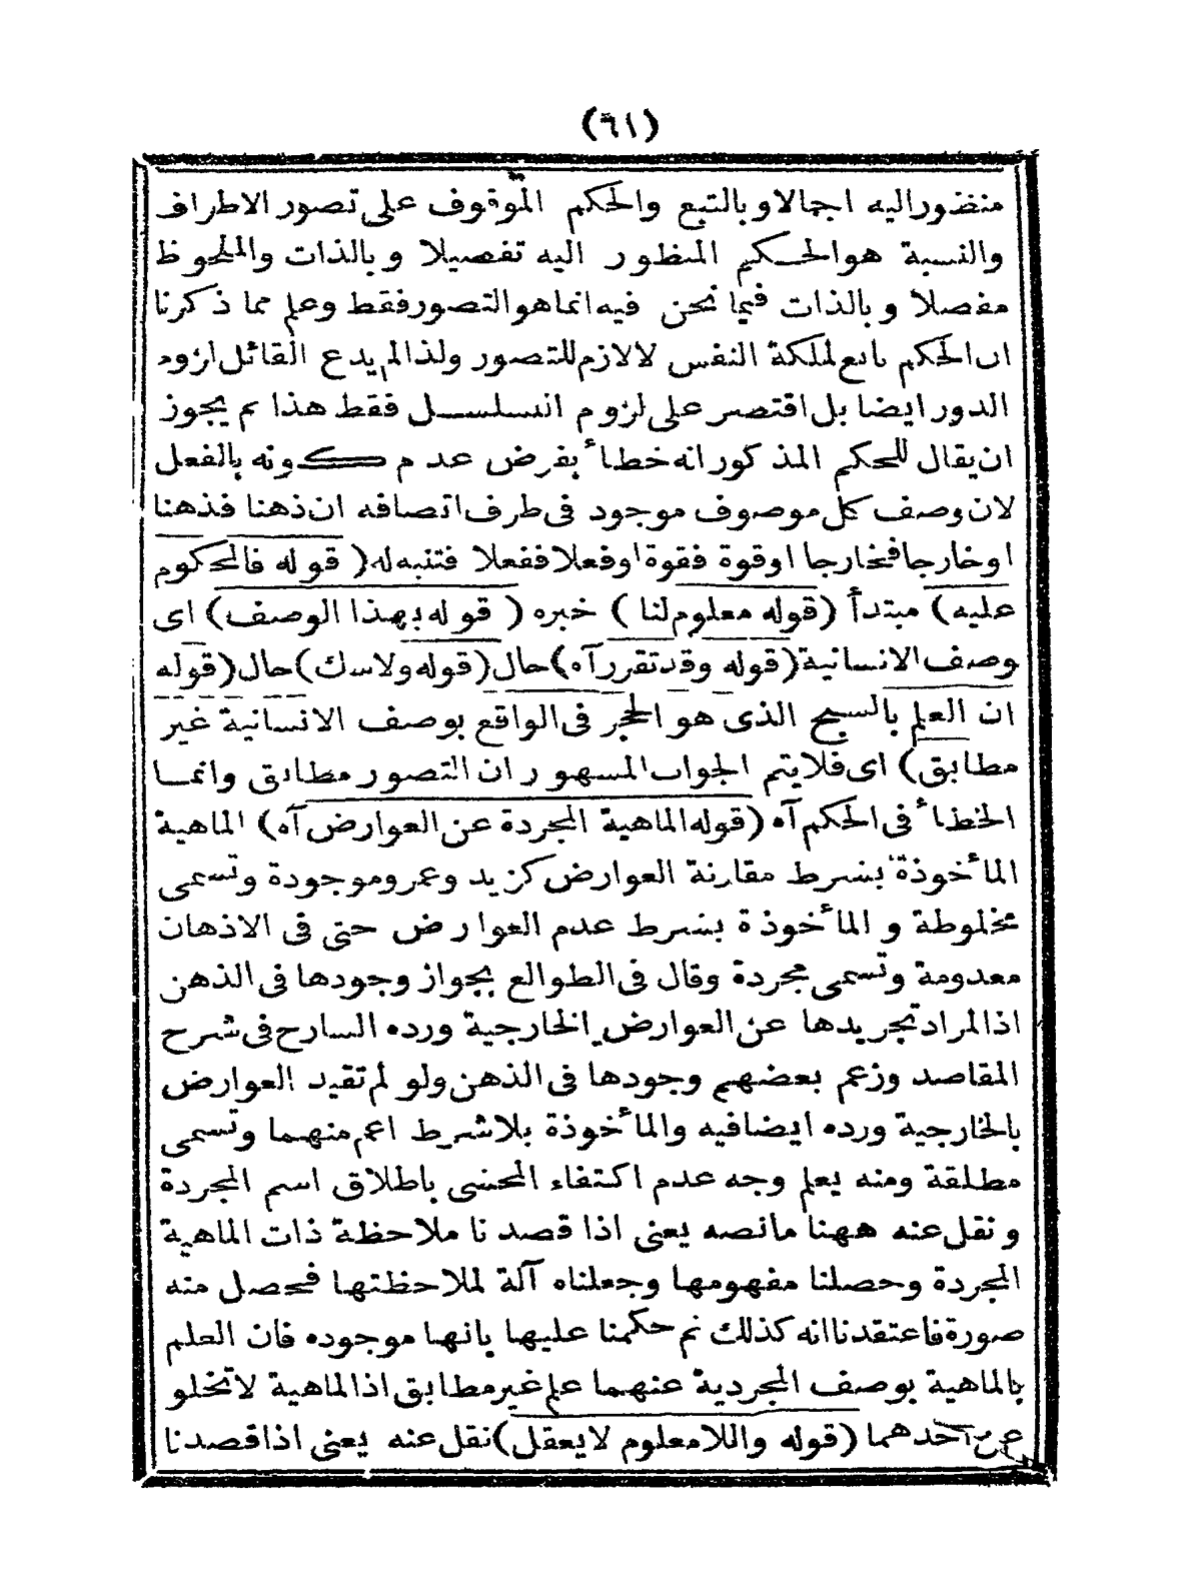 (٦١)
منظور اليه اجمالا وبالتبع والحكم الموقوف على تصور الاطراف
والنسبة هو الحكم المنظور اليه تفصيلا وبالذات والملحوظ
مفصلا وبالذات فيما نحن فيه انما هو التصور فقط وعلم مما ذكرنا
ان الحكم تابع لملكة النفس لا لازم للتصور ولذا لم يدع القائل لزوم
الدور ايضا بل اقتصر على لزوم التسلسل فقط هذا ثم يجوز
ان يقال للحكم المذكور انه خطأ بفرض عدم كونه بالفعل
لان وصف كل موصوف موجود فى طرف اتصافه ان ذهنا فذهنا
او خارجا فخارجا او قوة فقوة او فعلا ففعلا فتنبه له (قوله فالمحكوم
عليه) مبتدأ (قوله معلوم لنا) خبره (قوله بهذا الوصف) اى
وصف الانسانية (قوله وقد تقرر آه) حال (قوله ولاشك) حال (قوله
ان العلم بالشبح الذى هو الحجر فى الواقع بوصف الانسانية غير
مطابق) اى فلا يتم الجواب المشهور ان التصور مطابق وانما
الخطأ فى الحكم آه (قوله الماهية المجردة عن العوارض آه) الماهية
المأخوذة بشرط مقارنة العوارض كزيد وعمرو موجودة وتسمى
مخلوطة والمأخوذة بشرط عدم العوارض حتى فى الاذهان
معدومة وتسمى مجردة وقال فى الطوالع بجواز وجودها فى الذهن
اذ المراد تجريدها عن العوارض الخارجية ورده الشارح فى شرح
المقاصد وزعم بعضهم وجودها فى الذهن ولو لم تقيد العوارض
بالخارجية ورده ايضا فيه والمأخوذة بلا شرط اعم منهما وتسمى
مطلقة ومنه يعلم وجه عدم اكتفاء المحشى باطلاق اسم المجردة
ونقل عنه ههنا مانصه يعنى اذا قصدنا ملاحظة ذات الماهية
المجردة وحصلنا مفهومها وجعلناه آلة لملاحظتها فحصل منه
صورة فاعتقدنا انه كذلك ثم حكمنا عليها بانها موجوده فان العلم
بالماهية بوصف المجردية عنهما علم غير مطابق اذ الماهية لا تخلو
عن احدهما (قوله واللامعلوم لايعقل) نقل عنه يعنى اذا قصدنا